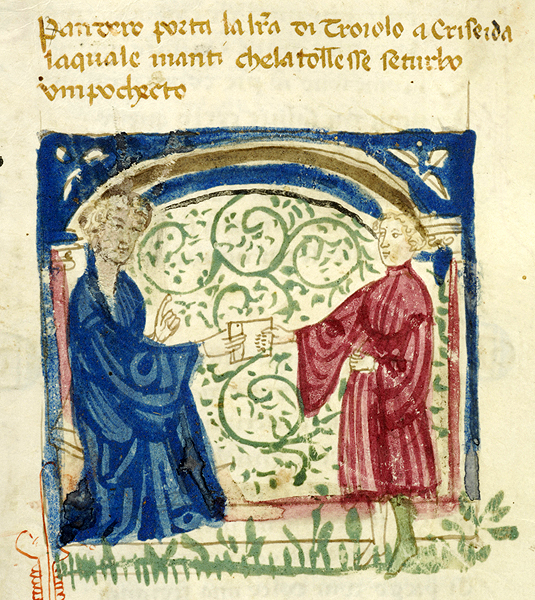 Pandero porta la lr̃a di Troiolo a Criseida
laquale inanti chela tollesse seturbo
vnpochecto